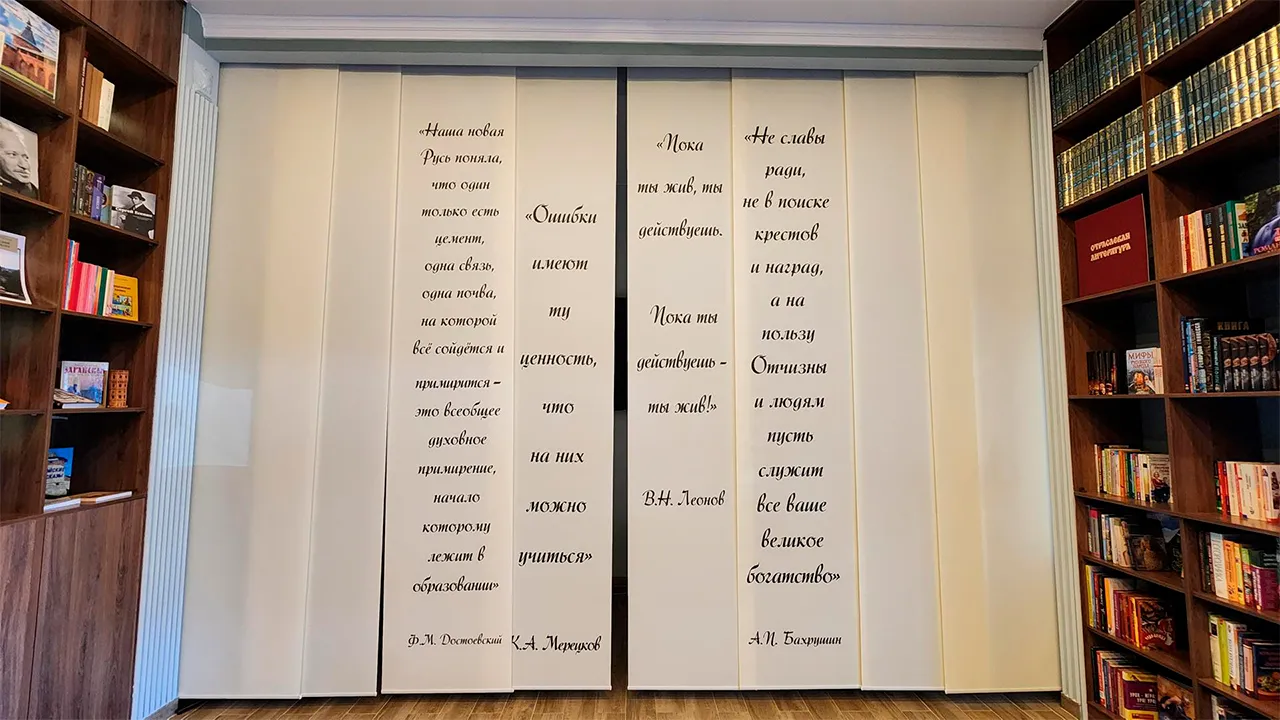 «Наша новая
Русь поняла,
что один
только есть
цемент,
одна связь,
одна почва,
на которой
всё сойдётся и
примирится –
это всеобщее
духовное
примирение,
начало
которому
лежит в
образовании»
Ф.М. Достоевский
«Ошибки
имеют
ту
ценность,
что
на них
можно
учиться»
К.А. Мерецков
«Пока
ты жив, ты
действуешь.
Пока ты
действуешь –
ты жив!»
В.Н. Леонов
«Не славы
ради,
не в поиске
крестов
и наград,
а на
пользу
Отчизны
и людям
пусть
служит
все ваше
великое
богатство»
А.П. Бахрушин
ОТРАСЛЕВАЯ
ЛИТЕРАТУРА
КНИГА
МИФЫ